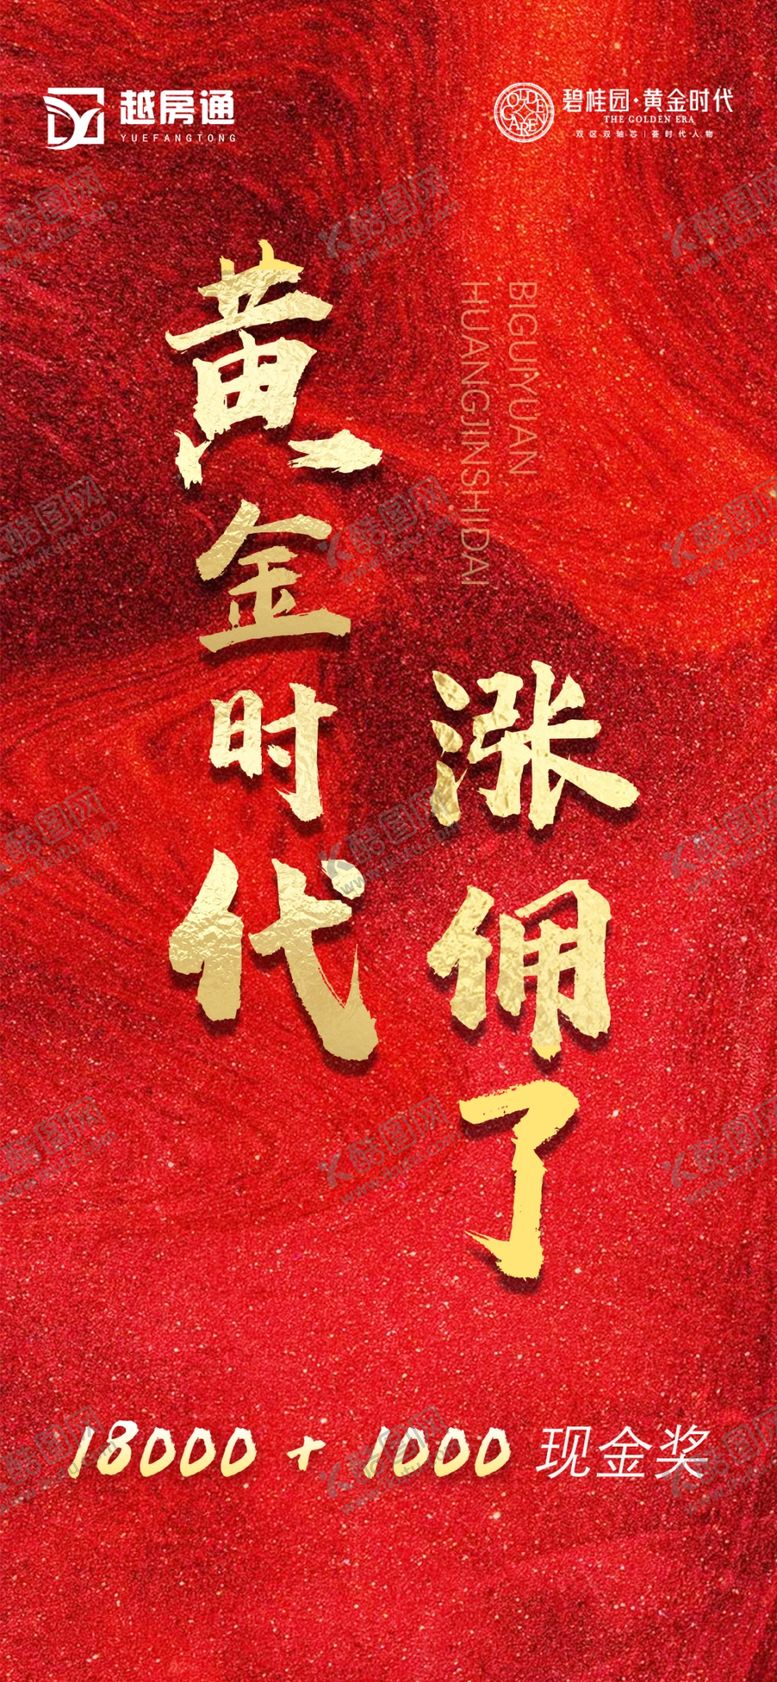 越房通
YUEFANGTONG
碧桂园·黄金时代
THE GOLDEN ERA
双区双轴芯|荟时代人物
GOLDEN
CAREN
黄金时代
BIGUIYUAN
HUANGJINSHIDAI
涨佣了
18000 + 1000 现金奖
酷图网
www.ikutu.com